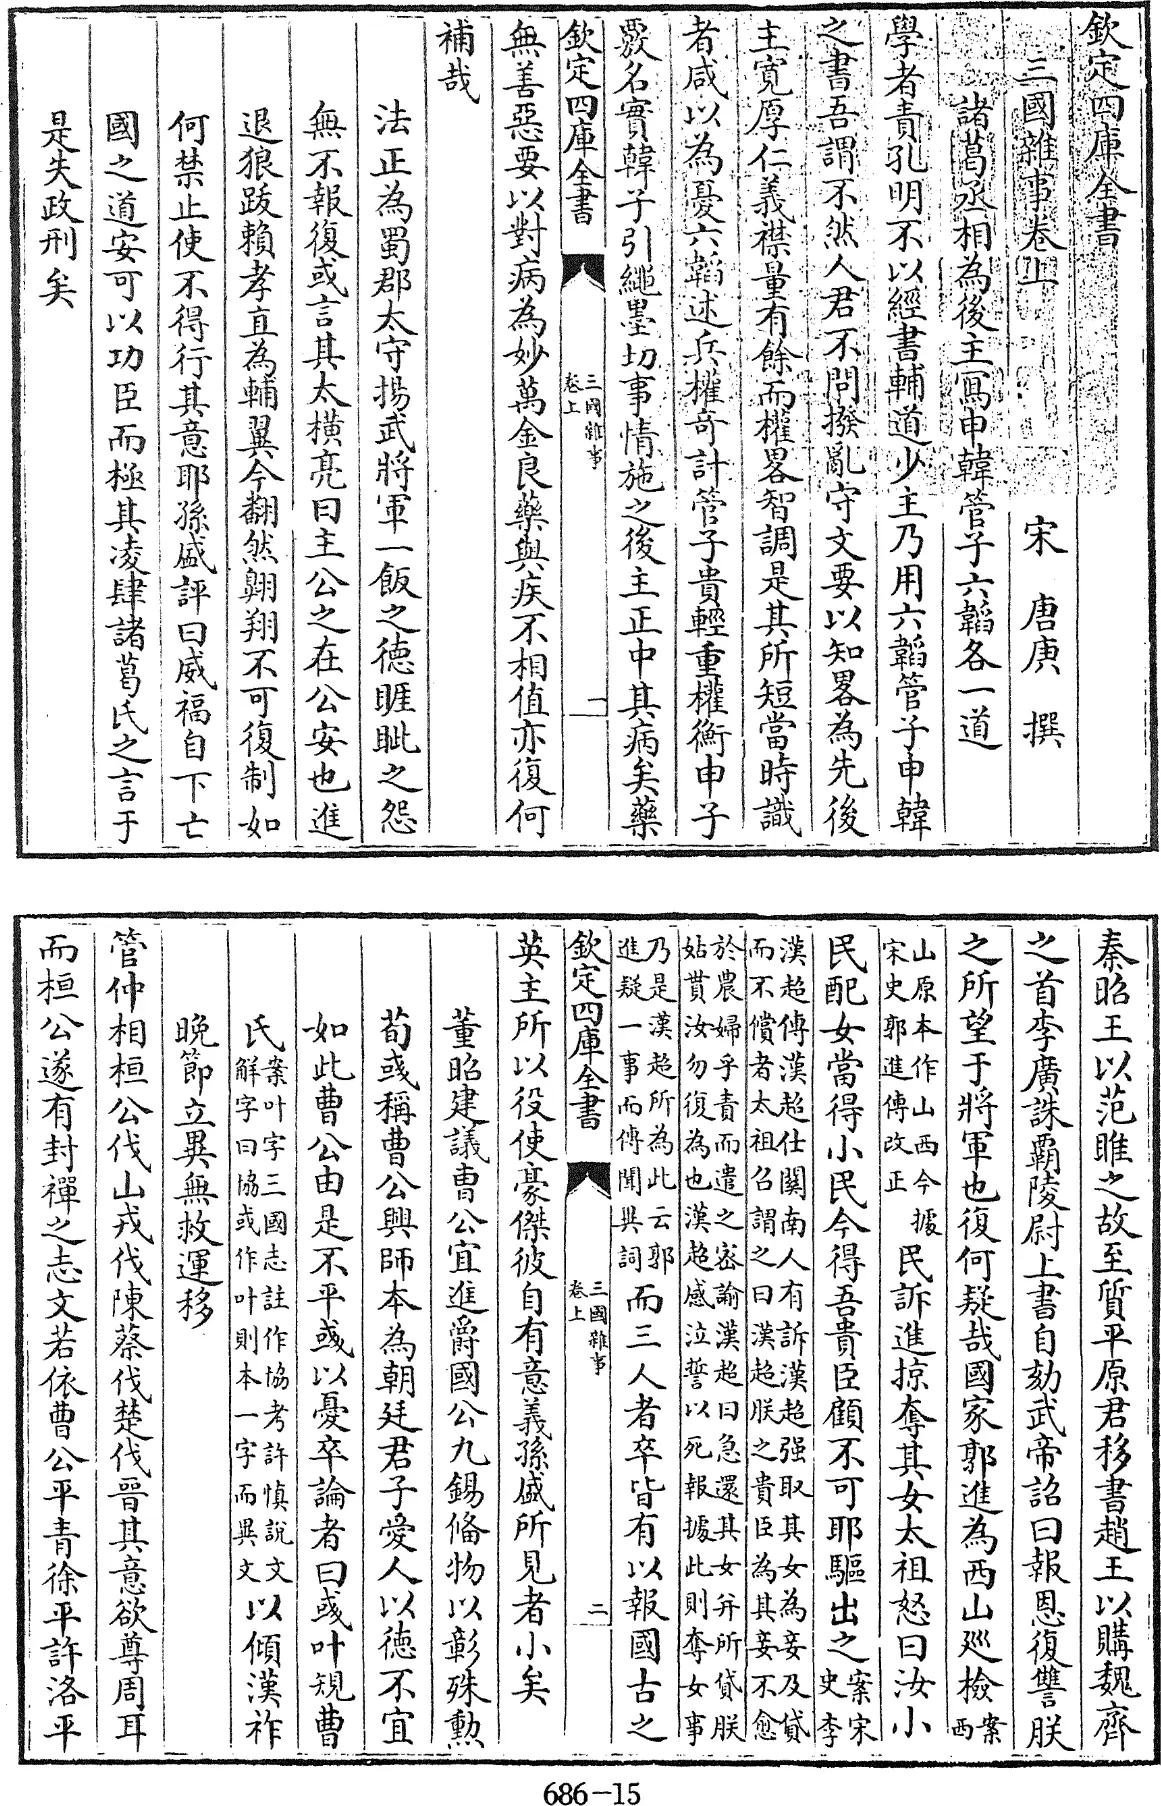 欽定四庫全書
三國雜事卷上 宋 唐庚 撰
諸葛丞相為後主寫申韓管子六韜各一道
學者責孔明不以經書輔道少主乃用六韜管子申韓
之書吾謂不然人君不問撥亂守文要以知畧為先後
主寛厚仁義襟量有餘而權畧智調是其所短當時識
者咸以為憂六韜述兵權奇計管子貴輕重權衡申子
覈名實韓子引繩墨切事情施之後主正中其病矣藥
欽定四庫全書 三國雜事 卷上 一
無善惡要以對病為妙萬金良藥與疾不相值亦復何
補哉
法正為蜀郡太守揚武將軍一飯之德睚眦之怨
無不報復或言其太橫亮曰主公之在公安也進
退狼跋賴孝直為輔翼今翻然翺翔不可復制如
何禁止使不得行其意耶孫盛評曰威福自下亡
國之道安可以功臣而極其凌肆諸葛氏之言于
是失政刑矣
秦昭王以范睢之故至質平原君移書趙王以購魏齊
之首李廣誅霸陵尉上書自劾武帝詔曰報恩復讐朕
之所望于將軍也復何疑哉國家郭進為西山廵檢案西
山原本作山西今據宋史郭進傳改正民訴進掠奪其女太祖怒曰汝小
民配女當得小民今得吾貴臣顧不可耶驅出之案宋史李
漢超傳漢超仕關南人有訴漢超强取其女為妾及貸
而不償者太祖召謂之曰漢超朕之貴臣為其妾不愈
於農婦乎責而遣之宻諭漢超曰急還其女并所貸朕
姑貰汝勿復為也漢超感泣誓以死報據此則奪女事
乃是漢超所為此云郭進疑一事而傳聞異詞而三人者卒皆有以報國古之
欽定四庫全書 三國雜事 卷上 二
英主所以役使豪傑彼自有意義孫盛所見者小矣
董昭建議曹公宜進爵國公九錫備物以彰殊勲
荀彧稱曹公興師本為朝廷君子愛人以德不宜
如此曹公由是不平彧以憂卒論者曰彧叶規曹
氏案叶字三國志註作協考許慎說文解字曰協或作叶則本一字而異文以傾漢祚
晚節立異無救運移
管仲相桓公伐山戎伐陳蔡伐楚伐晉其意欲尊周耳
而桓公遂有封禪之志文若依曹公平青徐平許洛平
686-15